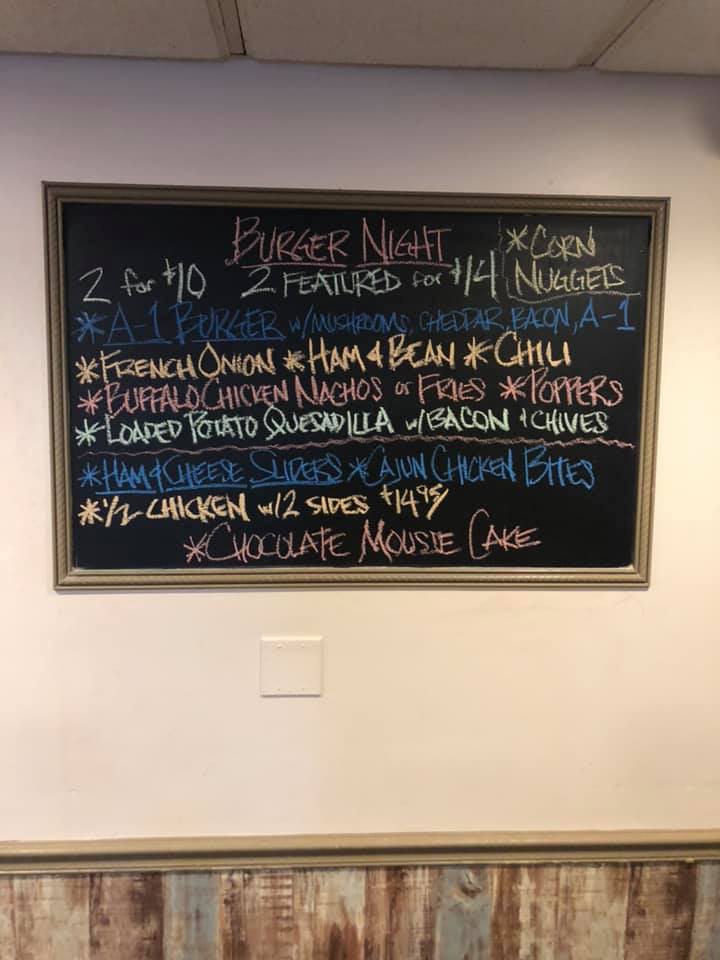 BURGER NIGHT
*CORN NUGGETS
2 for $10 2 FEATURED for $14
*A-1 BURGER w/MUSHROOMS, CHEDDAR, BACON, A-1
*FRENCH ONION *HAM & BEAN *CHILI
*BUFFALO CHICKEN NACHOS or FRIES *POPPERS
*LOADED POTATO QUESADILLA w/BACON & CHIVES
*HAM & CHEESE SLIDERS *CAJUN CHICKEN BITES
*1/2 CHICKEN w/2 SIDES $14.95
*CHOCOLATE MOUSSE CAKE